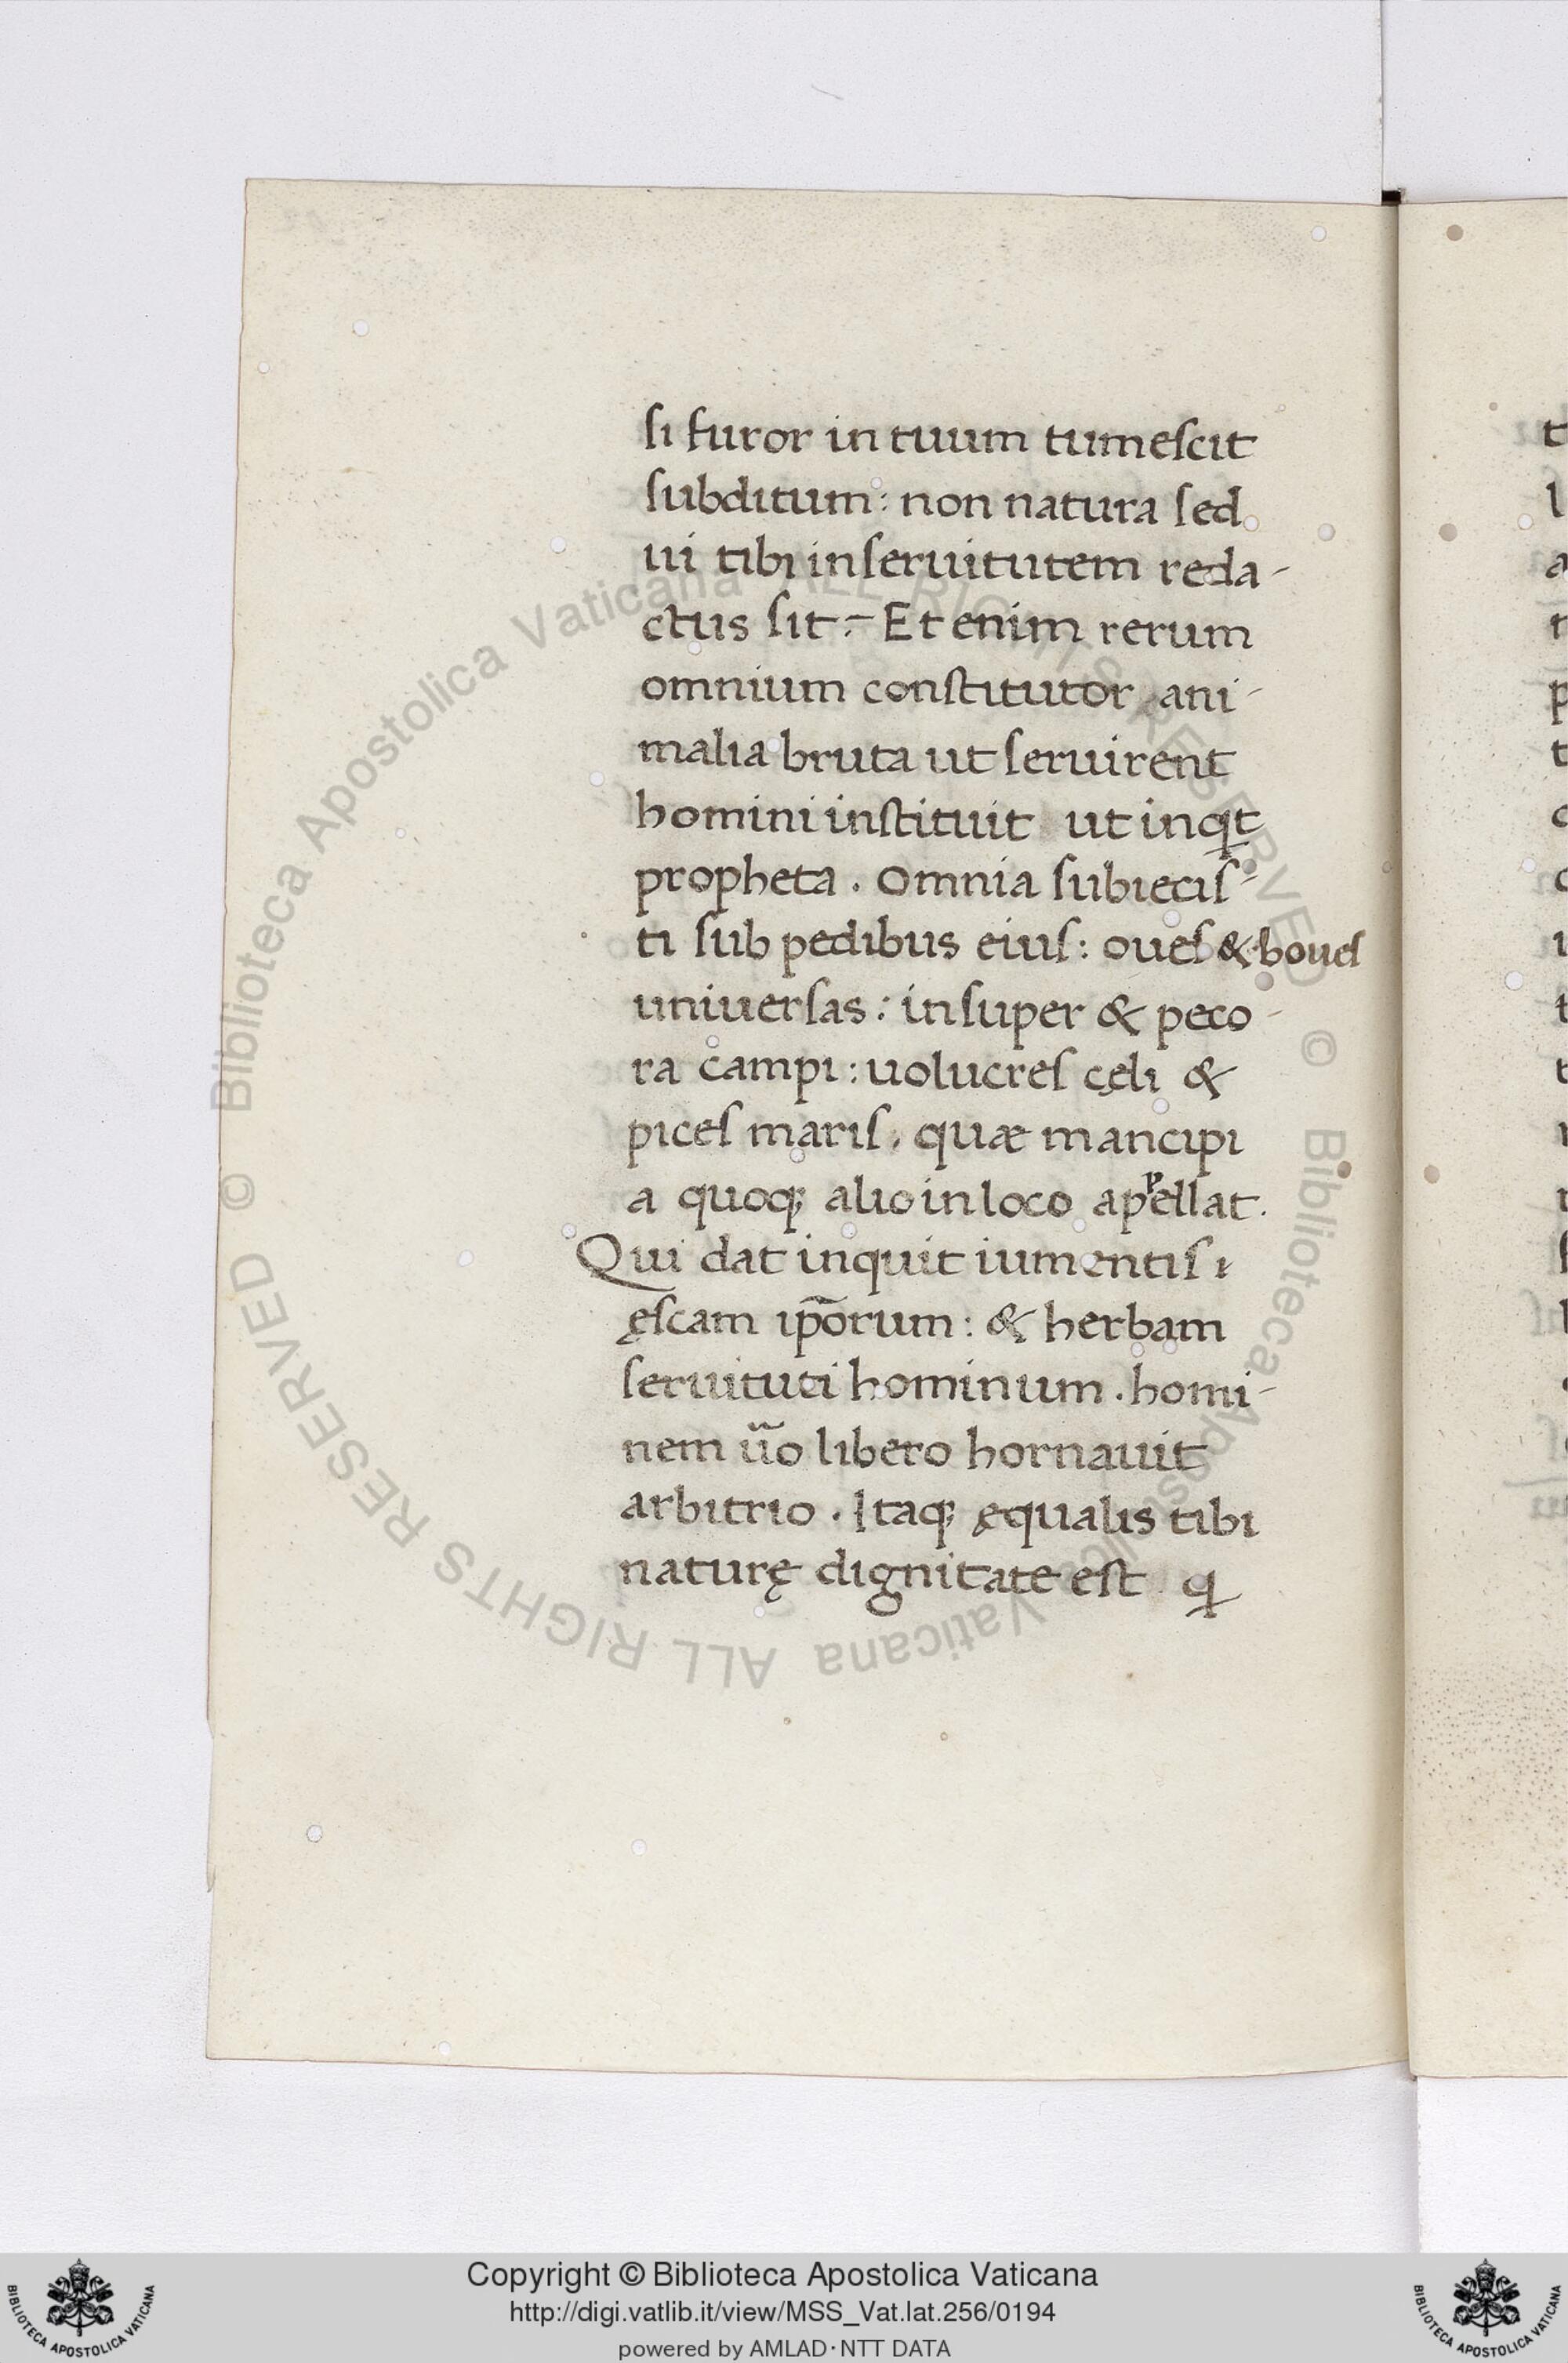 si furor in tuum tumescit
subditum: non natura sed
ui tibi inseruitutem reda-
ctus sit:- Et enim rerum
omnium constitutor, ani-
malia bruta ut seruirent
homini instituit ut inqt
propheta. Omnia subiecis-
ti sub pedibus eius: oues & boues
uniuersas: insuper & peco-
ra campi: uolucres cęli &
pices maris, quæ mancipi
a quoq; alio in loco apᵖellat.
Qui dat inquit iumentis
ęscam ip̄orum: & herbam
seruituti hominum. homi-
nem ūo libero hornauit
arbitrio. Itaq; ęqualis tibi
naturę dignitate est q
Copyright © Biblioteca Apostolica Vaticana
http://digi.vatlib.it/view/MSS_Vat.lat.256/0194
powered by AMLAD·NTT DATA
BIBLIOTECA APOSTOLICA VATICANA
BIBLIOTECA APOSTOLICA VATICANA
© Biblioteca Apostolica Vaticana ALL RIGHTS RESERVED © Biblioteca Apostolica Vaticana ALL RIGHTS RESERVED